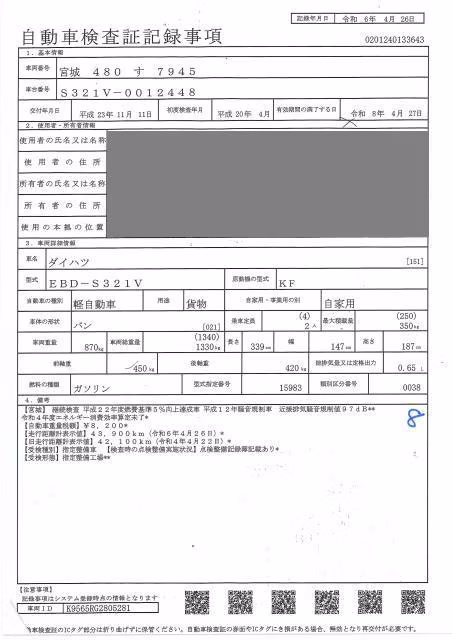 記録年月日 令和 6年 4月 26日
自動車検査証記録事項
0201240133643
1．基本情報
車両番号 宮城 480 す 7945
車台番号 S321V-0012448
交付年月日 平成 23年 11月 11日 初度検査年月 平成 20年 4月 有効期間の満了する日 令和 8年 4月 27日
2．使用者・所有者情報
使用者の氏名又は名称
使用者の住所
所有者の氏名又は名称
所有者の住所
使用の本拠の位置
3．車両詳細情報
車名 ダイハツ [151]
型式 EBD-S321V 原動機の型式 KF
自動車の種別 軽自動車 用途 貨物 自家用・事業用の別 自家用
車体の形状 バン [021] 乗車定員 (4) 2人 最大積載量 (250) 350kg
車両重量 870kg 車両総重量 (1340) 1330kg 長さ 339cm 幅 147cm 高さ 187cm
前軸重 450kg 後軸重 420kg 総排気量又は定格出力 0.65 L
燃料の種類 ガソリン 型式指定番号 15983 類別区分番号 0038
4．備考
【宮城】 継続検査 平成22年度燃費基準5%向上達成車 平成12年騒音規制車 近接排気騒音規制値97dB**
令和4年度エネルギー消費効率算定未了*
【自動車重量税額】¥8,200*
【走行距離計表示値】43,900km（令和6年4月26日）*
【旧走行距離計表示値】42,100km（令和4年4月22日）*
【受検種別】指定整備車 【検査時の点検整備実施状況】点検整備記録簿記載あり*
【受検形態】指定整備工場**
8
【注意事項】
記録事項はシステム登録時点の情報となります
車両ID K9565RG2805281
車検査証のICタグ部分は折り曲げずに保管ください。自動車検査証の券面やICタグにき損がある場合、無効となり再交付が必要です。